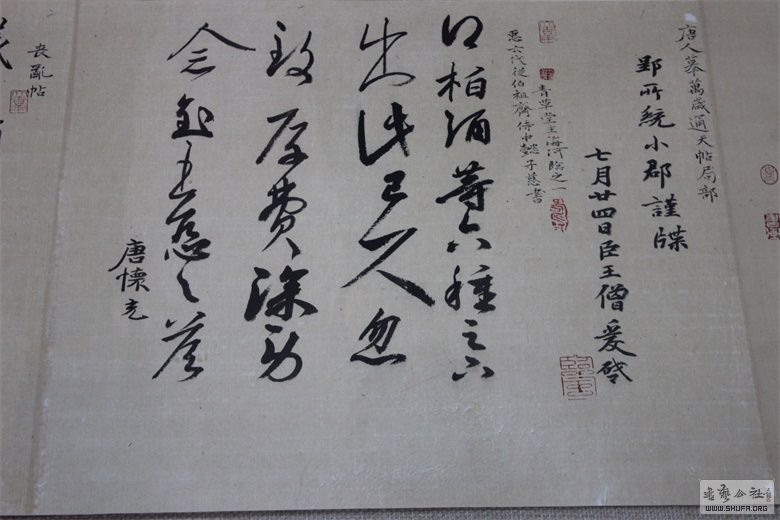 唐人摹萬歲通天帖局部
郢所統小郡謹牒
七月廿四日臣王僧虔啓
青草堂主海河臨之一
愚六代從伯祖齊侍中懿子慈書
得柏酒等六種之六
出此已久忽
致厚費深勞
念王慈之答
唐懷克
喪亂帖
書藝公社
WWW.SHUFA.ORG